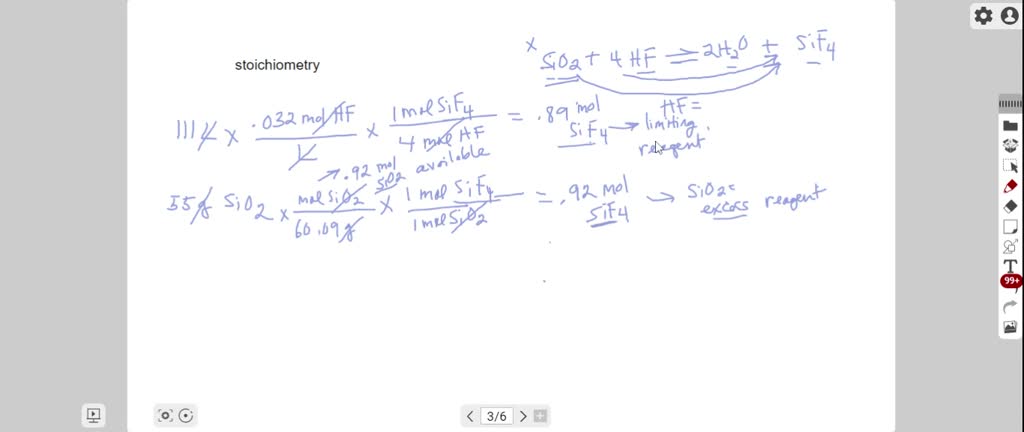 x SiO2 + 4 HF = 2H2O + SiF4
stoichiometry
111 L x .032 mol HF / L x 1 mol SiF4 / 4 mol HF = .89 mol SiF4 → HF = limiting reagent.
→ .92 mol SiO2 available
55g SiO2 x mol SiO2 / 60.09g x 1 mol SiF4 / 1 mol SiO2 = .92 mol SiF4 → SiO2 = excess reagent
3/6
T
99+